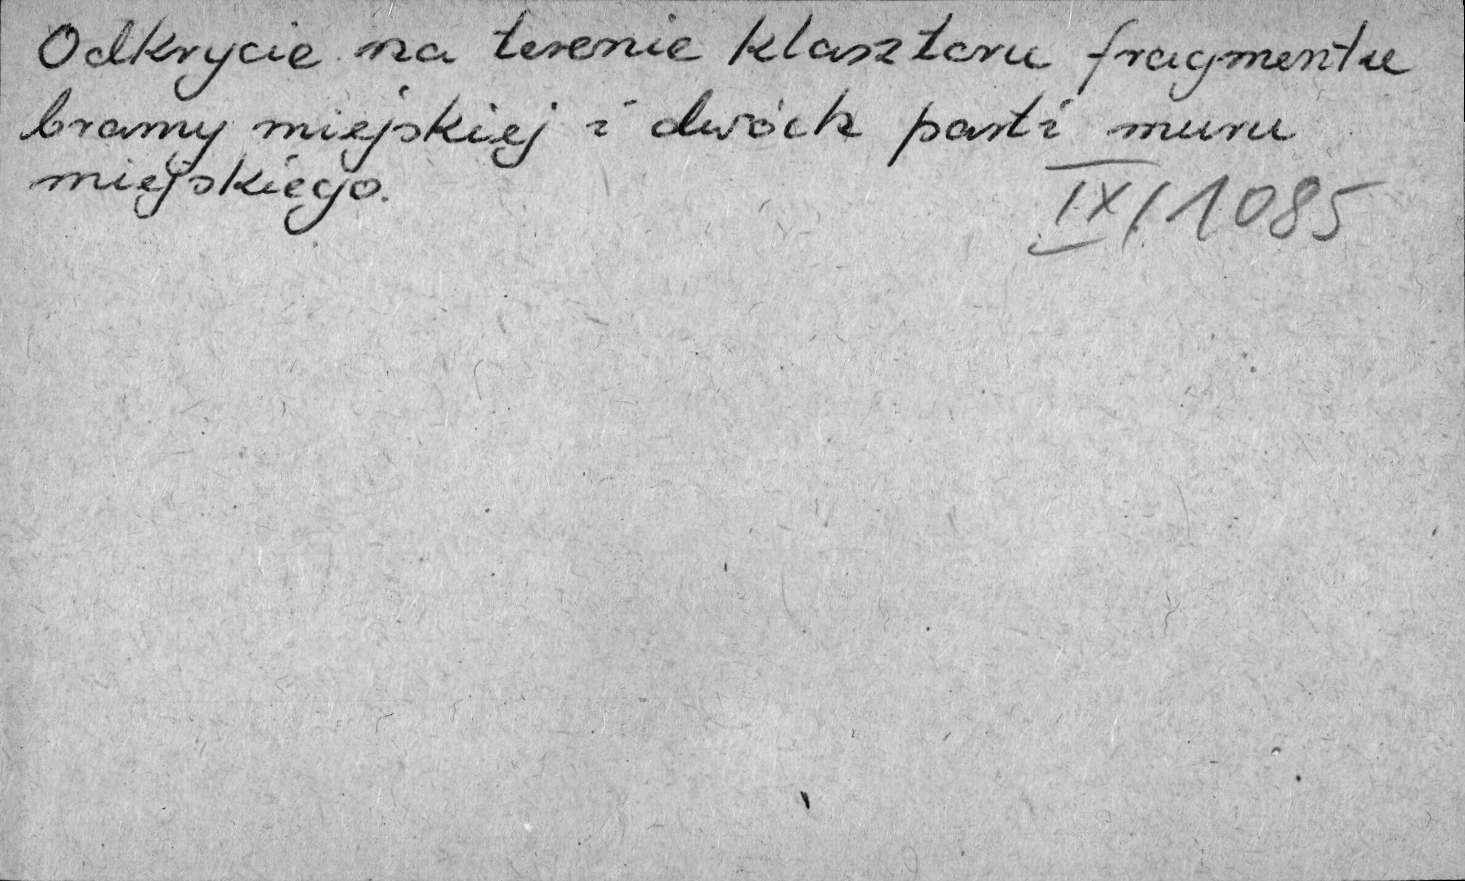 Odkrycie na terenie klasztoru fragmentu
bramy miejskiej i dwóch parti muru
miejskiego.
IX/1085